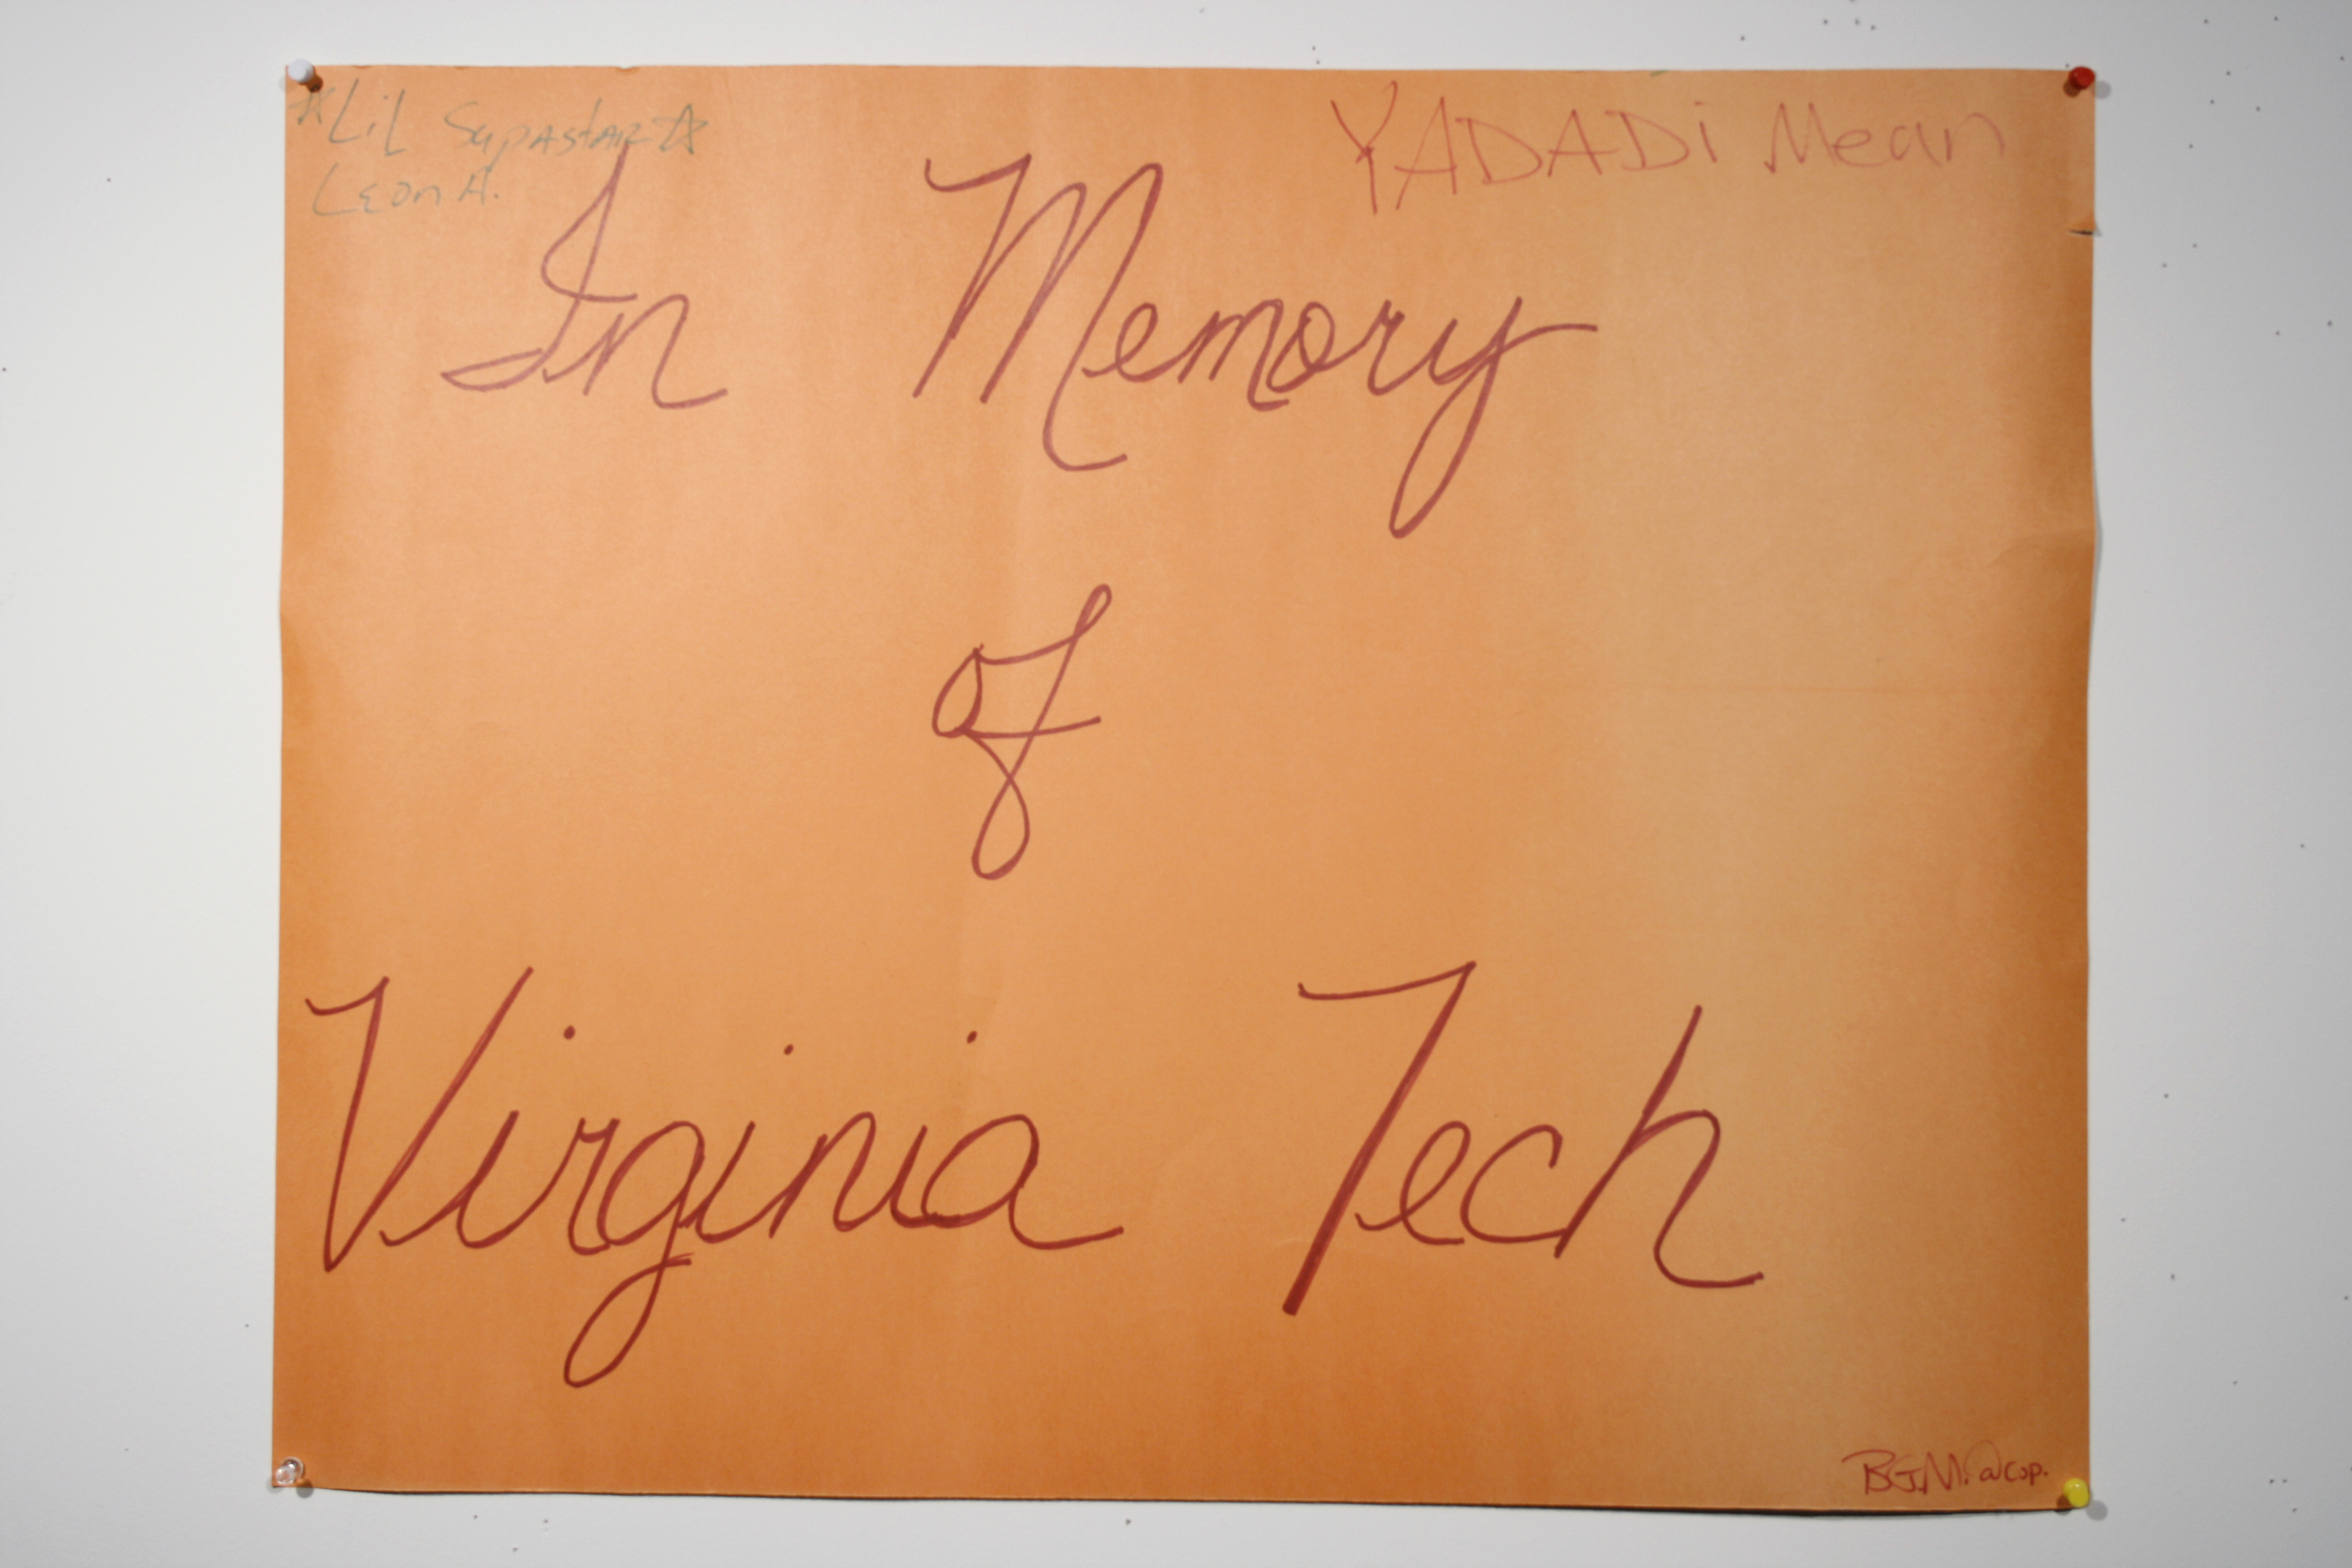 *LiL Supastar☆
Leon A.
YADADi Mean
In Memory
of
Virginia Tech
B.J.M. @cop.